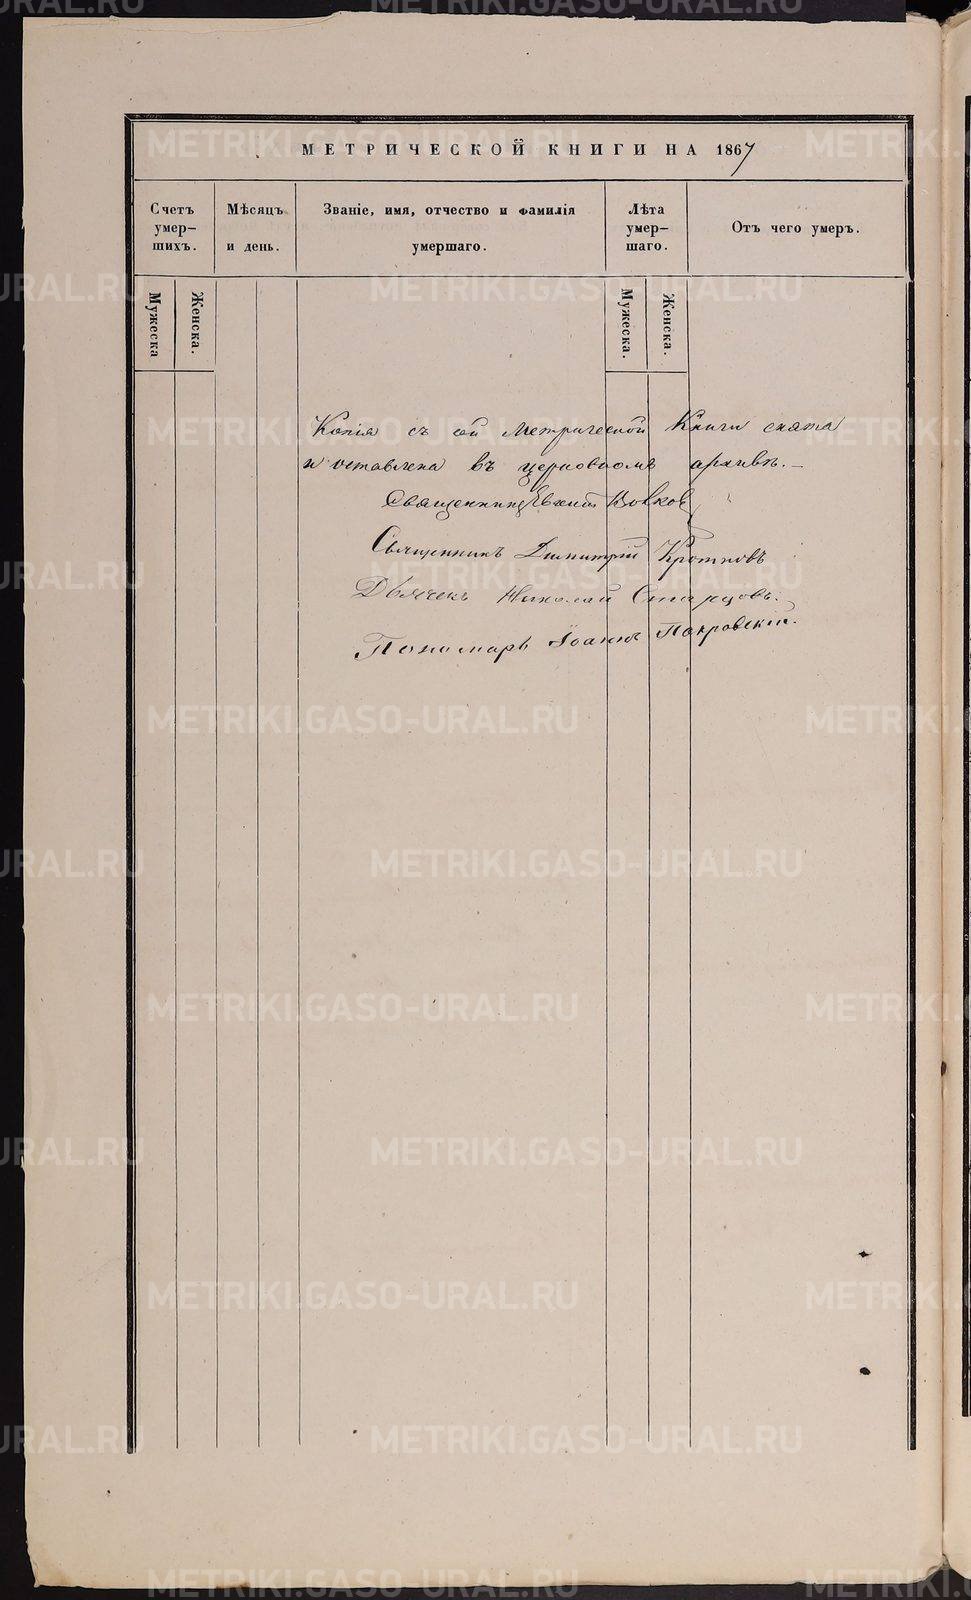 МЕТРИЧЕСКОЙ КНИГИ НА 1867
Счетъ умер-шихъ.
Мѣсяцъ и день.
Званіе, имя, отчество и фамилія умершаго.
Лѣта умер-шаго.
Отъ чего умеръ.
Мужеска
Женска.
Мужеска.
Женска.
Копія съ сей Метрической Книги снята
и оставлена въ церковномъ архивѣ.—
Священникъ Евгеній Вовков
Священникъ Димитрій Кротковъ
Дьячекъ Николай Старцовъ.
Пономарь Іоаннъ Покровскій.
METRIKI.GASO-URAL.RU